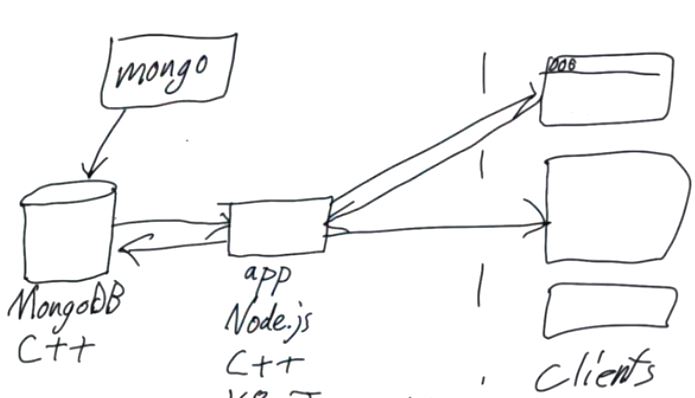 mongo
MongoDB
C++
app
Node.js
C++
Clients